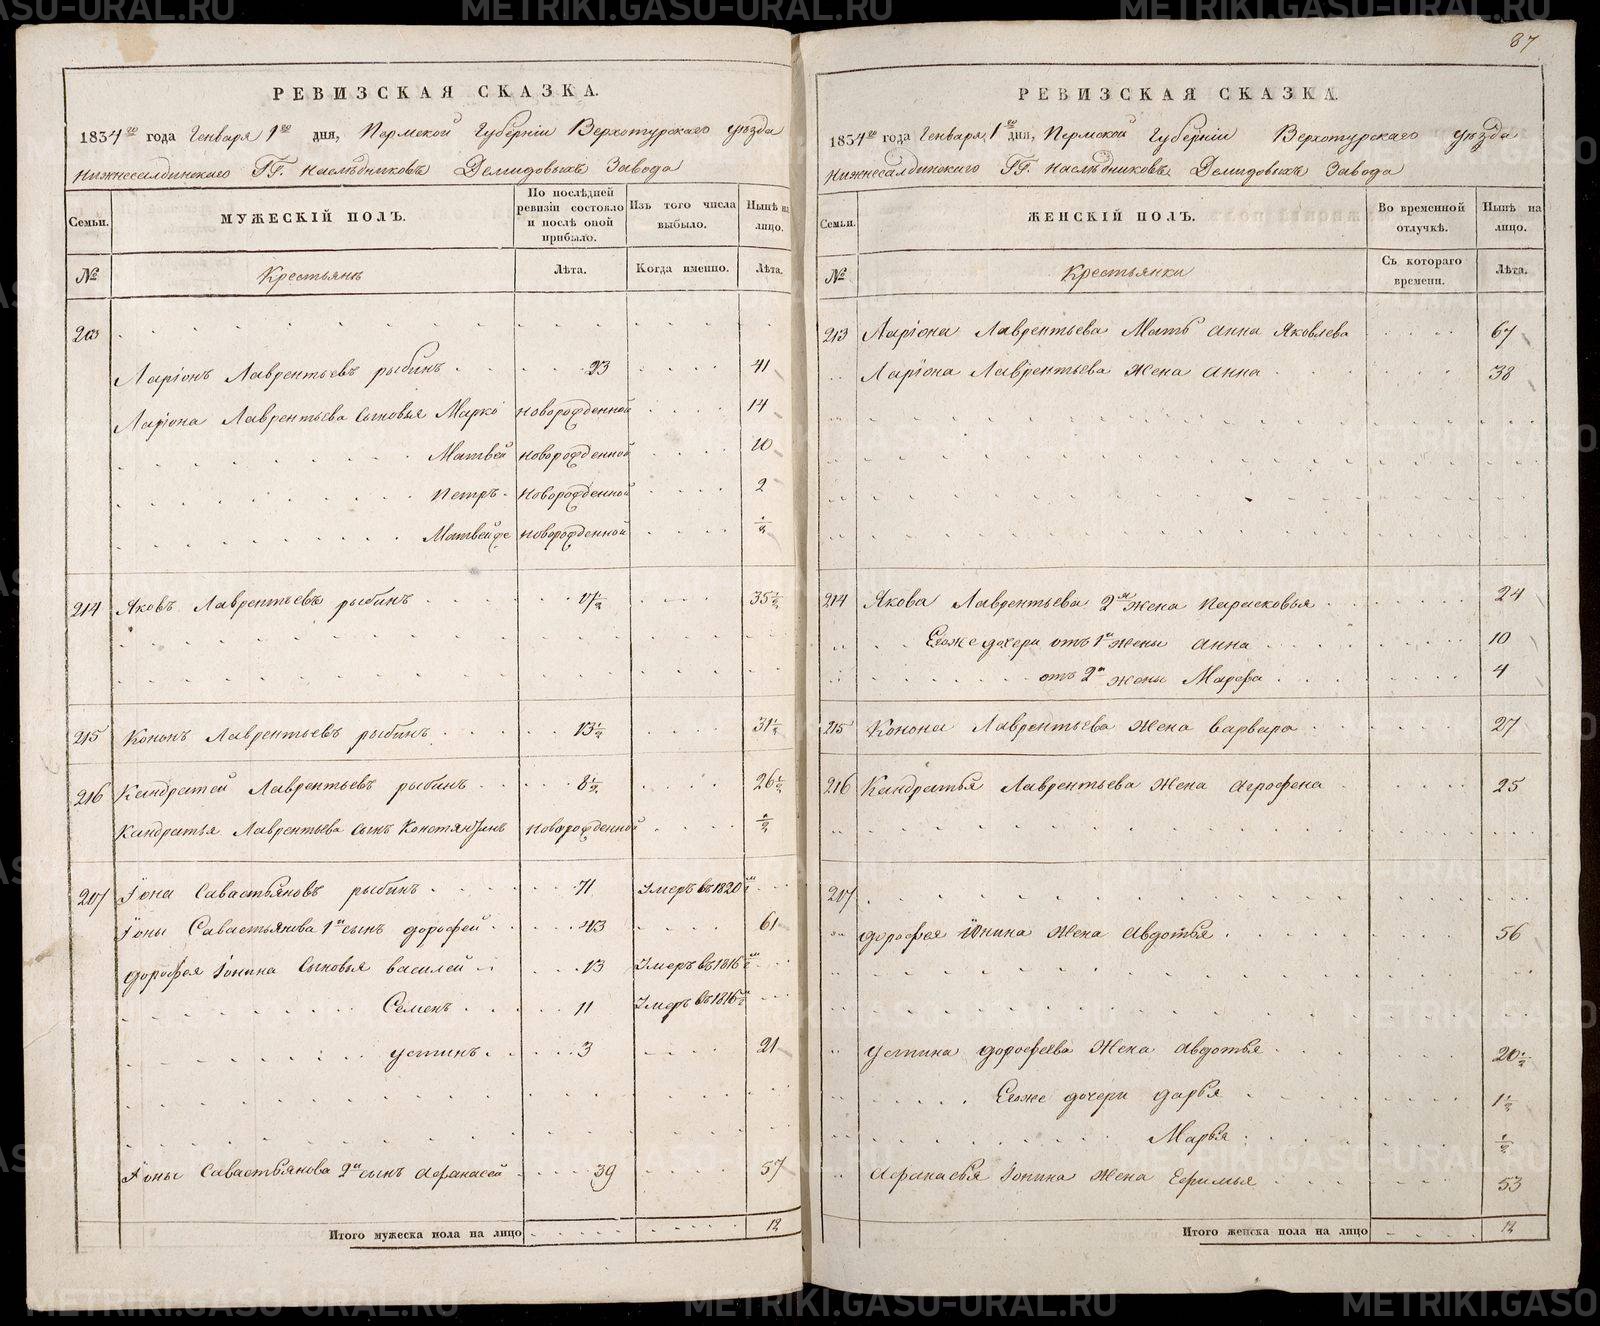 87
РЕВИЗСКАЯ СКАЗКА.
1834го года Генваря 1го дня, Пермской Губернiи Верхотурскаго уѣзда
Нижнесалдинскаго ГГ. наслѣдниковъ Демидовыхъ Завода
Семьи. МУЖЕСКIЙ ПОЛЪ. По послѣдней ревизiи состояло и послѣ оной прибыло. Изъ того числа выбыло. Нынѣ на лицо.
№ Крестьянъ Лѣта. Когда именно. Лѣта.
213
Ларiонъ Лаврентьевъ рыбинъ 23 41
Ларiона Лаврентьева сыновья Марко новорожденной 14
Матвей новорожденной 10
Петръ новорожденной 2
Матвейже новорожденной 1/2
214 Яковъ Лаврентьевъ рыбинъ 17 1/2 35 1/2
215 Кононъ Лаврентьевъ рыбинъ 13 1/2 31 1/2
216 Кандратей Лаврентьевъ рыбинъ 8 1/2 26 1/2
Кандратья Лаврентьева сынъ Констянтинъ Новорожденной 1/2
217 Iона Савастьяновъ рыбинъ 71 Умеръ въ 1820м
Iоны Савастьянова 1й сынъ дорофей 43 61
дорофея Iонина сыновья василей 13 Умеръ въ 1816м
Семенъ 11 Умеръ въ 1816м
устинъ 3 21
Iоны Савастьянова 2й сынъ афанасей 39 57
Итого мужеска пола на лицо 12
РЕВИЗСКАЯ СКАЗКА.
1834го года Генваря 1го дня, Пермской Губернiи Верхотурскаго уѣзда
Нижнесалдинскаго ГГ. наслѣдниковъ Демидовыхъ Завода
Семьи. ЖЕНСКIЙ ПОЛЪ. Во временной отлучкѣ. Нынѣ на лицо.
№ Крестьянки Съ котораго времени. Лѣта.
213 Ларiона Лаврентьева Мать анна Яковлева 67
Ларiона Лаврентьева жена анна 38
214 Якова Лаврентьева 2я жена Парасковья 24
Егоже дочери отъ 1й жены анна 10
отъ 2й жены Марфа 4
215 Конона Лаврентьева жена варвара 27
216 Кандратья Лаврентьева жена агрофена 25
217
дорофея Iонина жена авдотья 56
устина дорофеева жена авдотья 20 1/2
Егоже дочери дарья 1 1/2
Марья 1/2
афанасья Iонина жена Ефимья 53
Итого женска пола на лицо 12